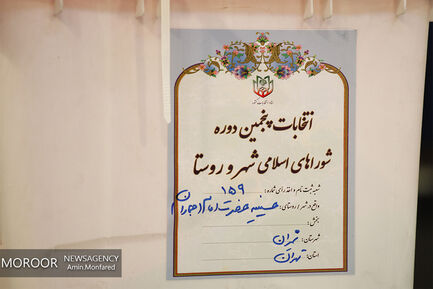 ستاد انتخابات کشور
انتخابات پنجمین دوره
شوراهای اسلامی شهر و روستا
شعبه ثبت نام و اخذ رای شماره: ۱۵۹
واقع در شهر / روستای: حسینیه حضرت امام (جماران)
بخش:
شهرستان: تهران
استان: تهران
MOROOR NEWSAGENCY
Amin.Monfared